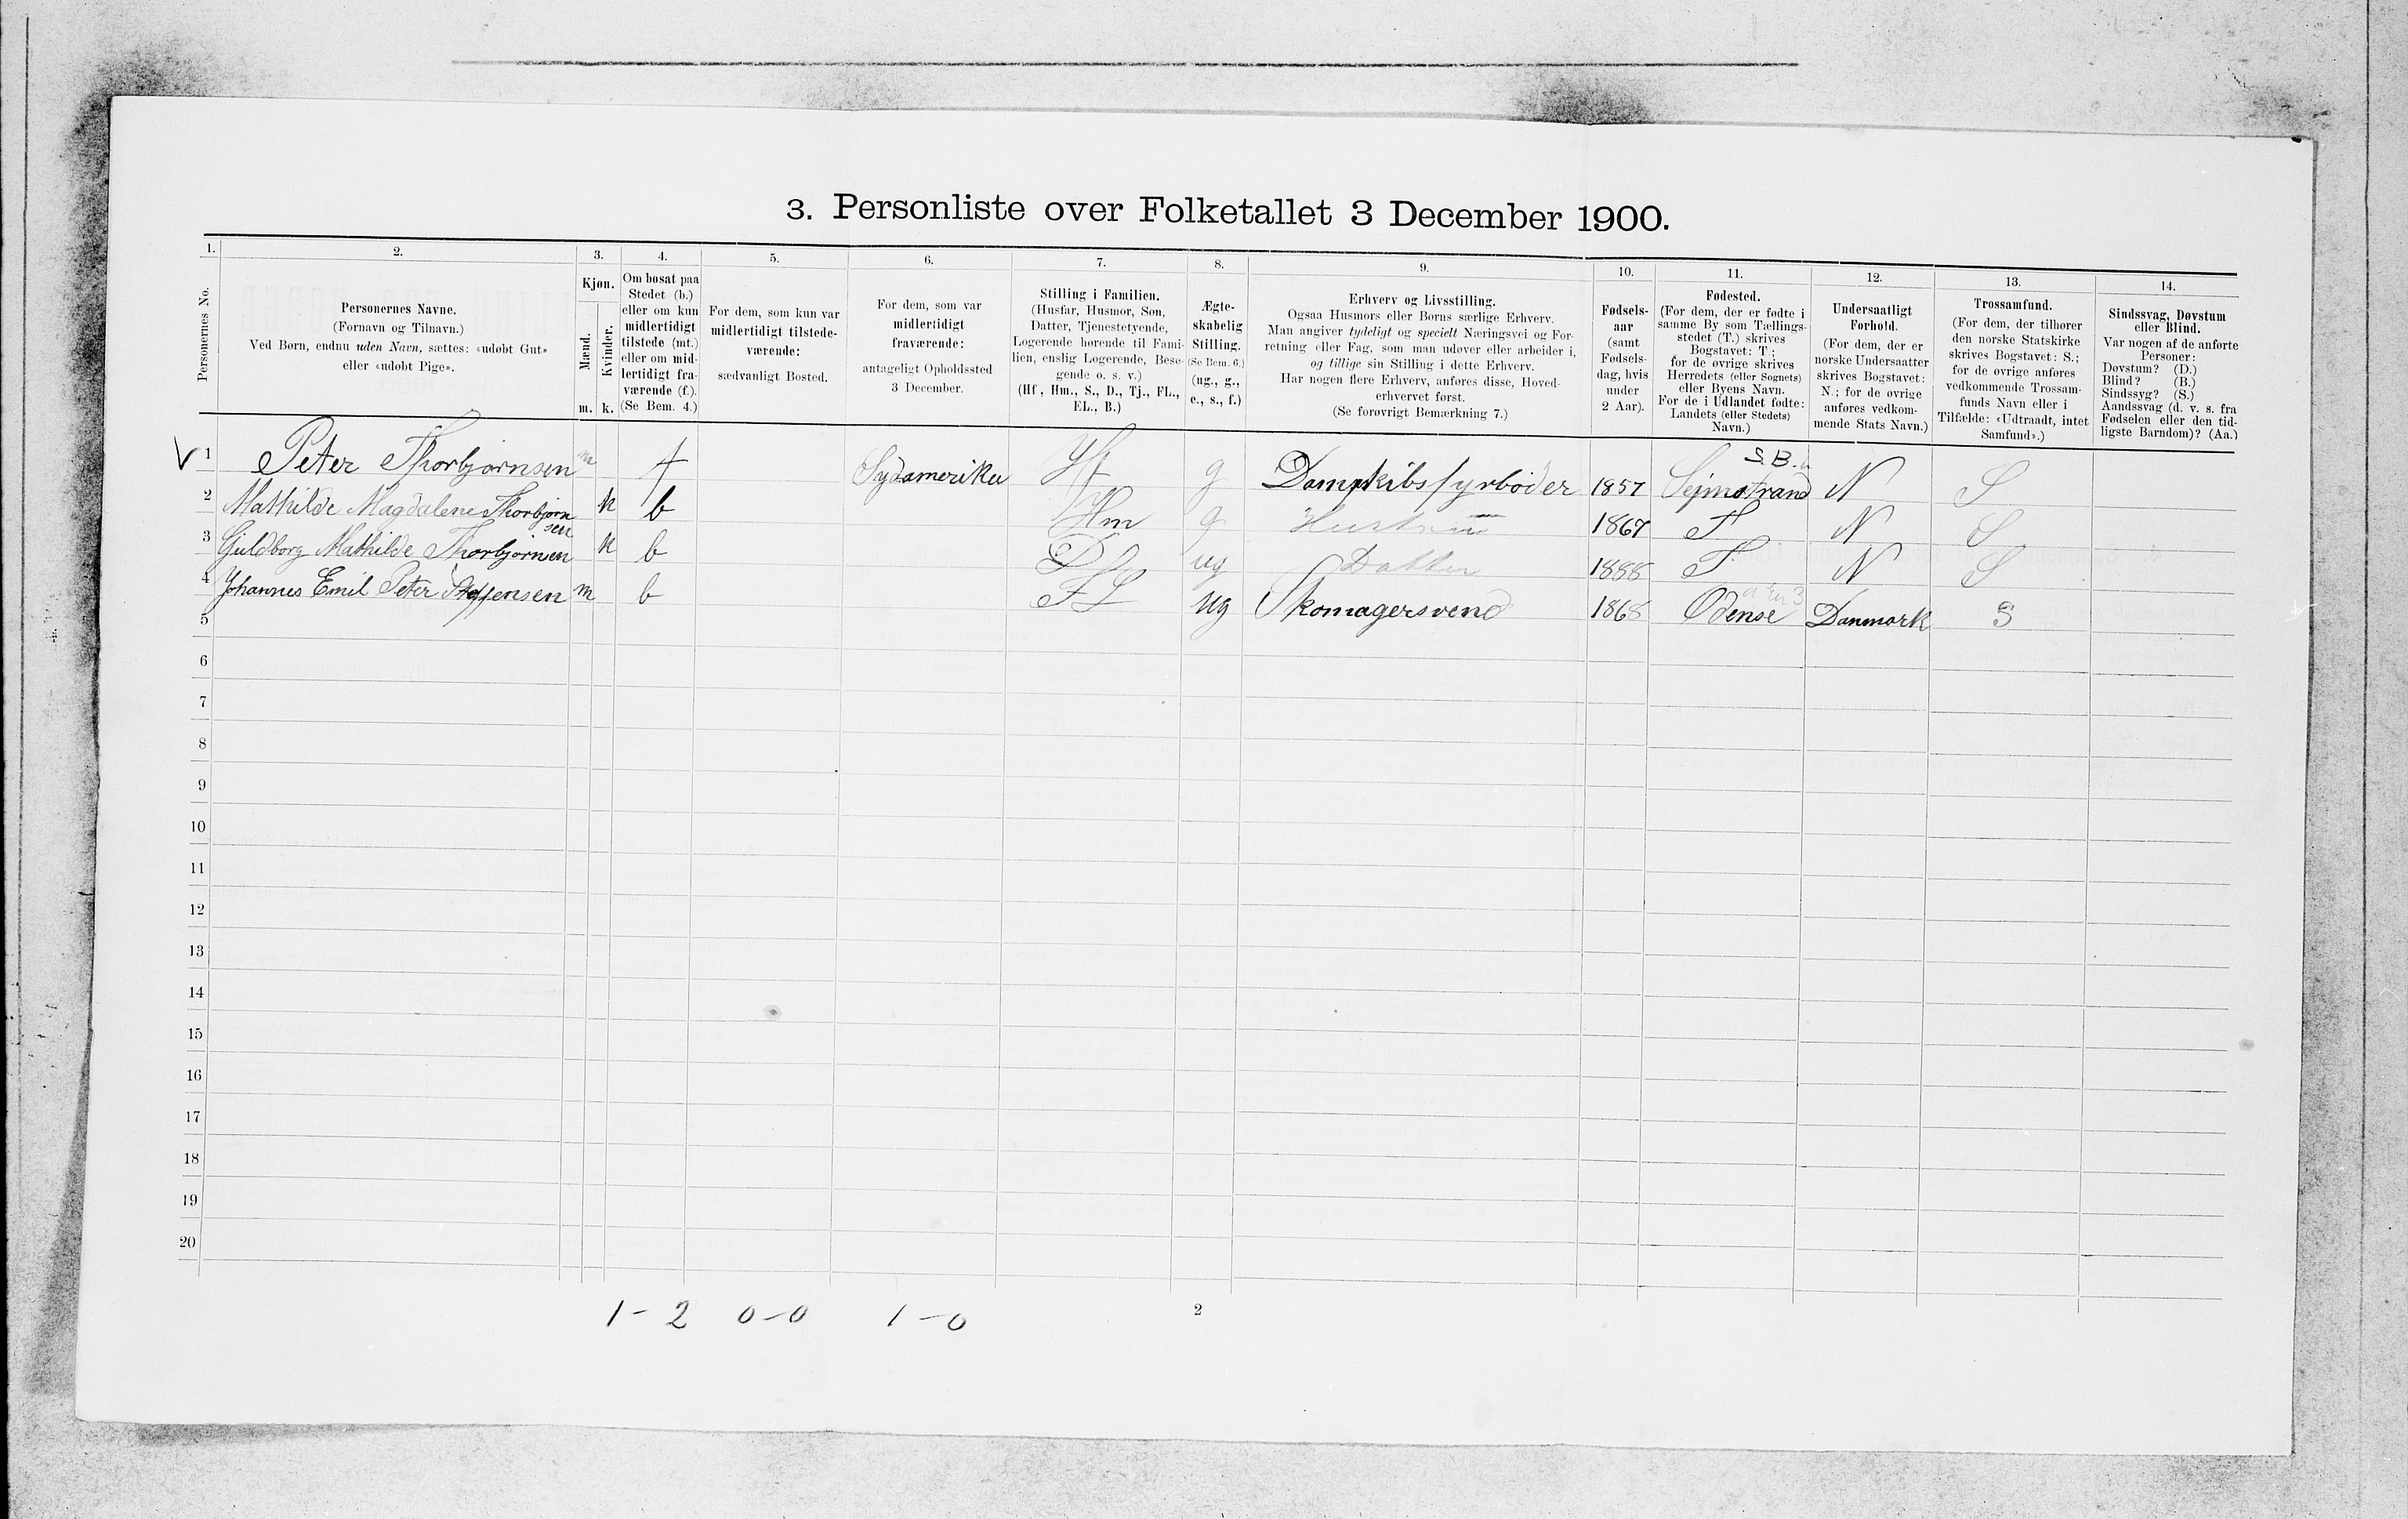 3. Personliste over Folketallet 3 December 1900.
1. 2. 3. 4. 5. 6. 7. 8. 9. 10. 11. 12. 13. 14.
Personernes No.
Personernes Navne.
(Fornavn og Tilnavn.)
Ved Børn, endnu uden Navn, sættes: «udøbt Gut»
eller «udøbt Pige».
Kjøn.
Mænd.
Kvinder.
m. k.
Om bosat paa
Stedet (b.)
eller om kun
midlertidigt
tilstede (mt.)
eller om mid-
lertidigt fra-
værende (f.).
(Se Bem. 4.)
For dem, som kun var
midlertidigt tilstede-
værende:
sædvanligt Bosted.
For dem, som var
midlertidigt
fraværende:
antageligt Opholdssted
3 December.
Stilling i Familien.
(Husfar, Husmor, Søn,
Datter, Tjenestetyende,
Logerende hørende til Fami-
lien, enslig Logerende, Besø-
gende o. s. v.)
(Hf., Hm., S., D., Tj., FL.,
EL., B.)
Ægte-
skabelig
Stilling.
(Se Bem. 6.)
(ug., g.,
e., s., f.)
Erhverv og Livsstilling.
Ogsaa Husmors eller Børns særlige Erhverv.
Man angiver tydeligt og specielt Næringsvei og For-
retning eller Fag, som man udøver eller arbeider i,
og tillige sin Stilling i dette Erhverv.
Har nogen flere Erhverv, anføres disse, Hoved-
erhvervet først.
(Se forøvrigt Bemærkning 7.)
Fødsels-
aar
(samt
Fødsels-
dag, hvis
under
2 Aar).
Fødested.
(For dem, der er fødte i
samme By som Tællings-
stedet (T.) skrives
Bogstavet: T.;
for de øvrige skrives
Herredets (eller Sognets)
eller Byens Navn.
For de i Udlandet fødte:
Landets (eller Stedets)
Navn.)
Undersaatligt
Forhold.
(For dem, der er
norske Undersaatter
skrives Bogstavet:
N.; for de øvrige
anføres vedkom-
mende Stats Navn.)
Trossamfund.
(For dem, der tilhører
den norske Statskirke
skrives Bogstavet: S.;
for de øvrige anføres
vedkommende Trossam-
funds Navn eller i
Tilfælde: «Udtraadt, intet
Samfund».)
Sindssvag, Døvstum
eller Blind.
Var nogen af de anførte
Personer:
Døvstum? (D.)
Blind? (B.)
Sindssyg? (S.)
Aandssvag (d. v. s. fra
Fødselen eller den tid-
ligste Barndom)? (Aa.)
S.B.
1 Peter Thorbjørnsen m f Sydamerika Hf g Dampskibsfyrbøder 1857 N S
2 Mathilde Magdalene Thorbjørn k b Hm g Hustru 1867 T N S
sen
3 Guldborg Mathilde Thorbjørnsen k b D ug Datter 1888 T N S
4 Johannes Emil Peter Steffensen m b FL ug Skomagersvend 1868 Odense Danmark S
5
6
7
8
9
10
11
12
13
14
15
16
17
18
19
20
1-2 0-0 1-0
2